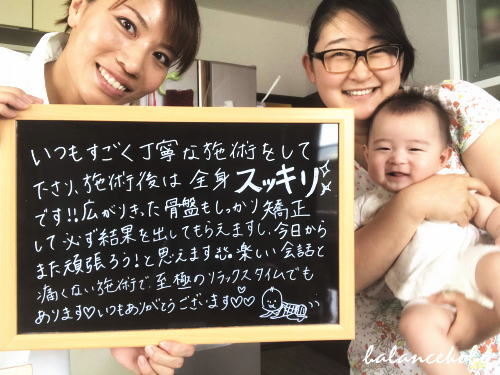 いつもすごく丁寧な施術をして
下さり、施術後は全身スッキリ
です!!広がりきった骨盤もしっかり矯正
して必ず結果を出してもらえますし、今日から
また頑張ろう!と思えます。楽しい会話と
痛くない施術で、至極のリラックスタイムでも
あります♡いつもありがとうございます♡♡